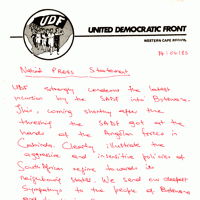 UDF
UNITED DEMOCRATIC FRONT
WESTERN CAPE REGION
14:06/85
PRESS Statement
UDF strongly condemns the latest
incursion by the SADF into Botswana.
this, coming shortly after the
thrashing the SADF got at the
hands of the Angolan forces in
Cabinda. Clearly illustrate the
aggressive and insensitive policies of
South African regime towards its
neighbouring states. We send our deepest
Sympathys to the people of Botswana